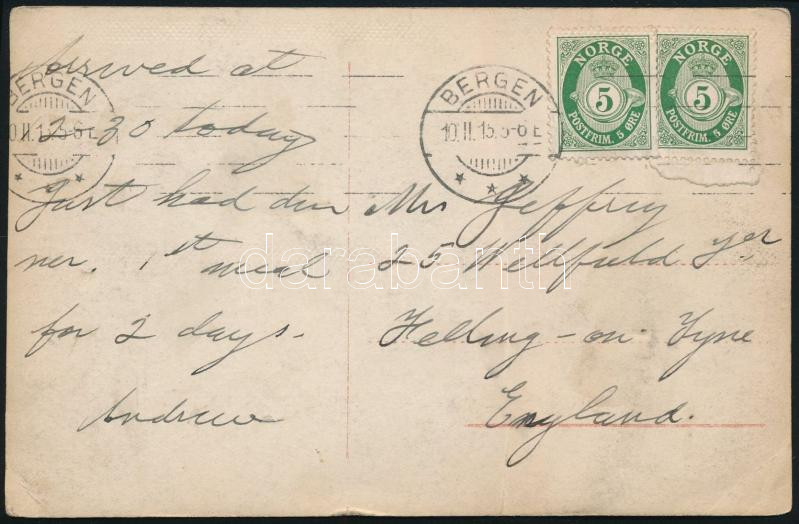 Arrived at
2.30 today
Just had din
ner. 1st meal
for 2 days.
Andrew
Mrs Jeffrey
25 Wellfield
Felling-on-Tyne
England.
BERGEN
10.II.15.5-6E
BERGEN
10.II.15.5-6E
NORGE
5
POSTFRIM. 5 ØRE
NORGE
5
POSTFRIM. 5 ØRE
darabanth